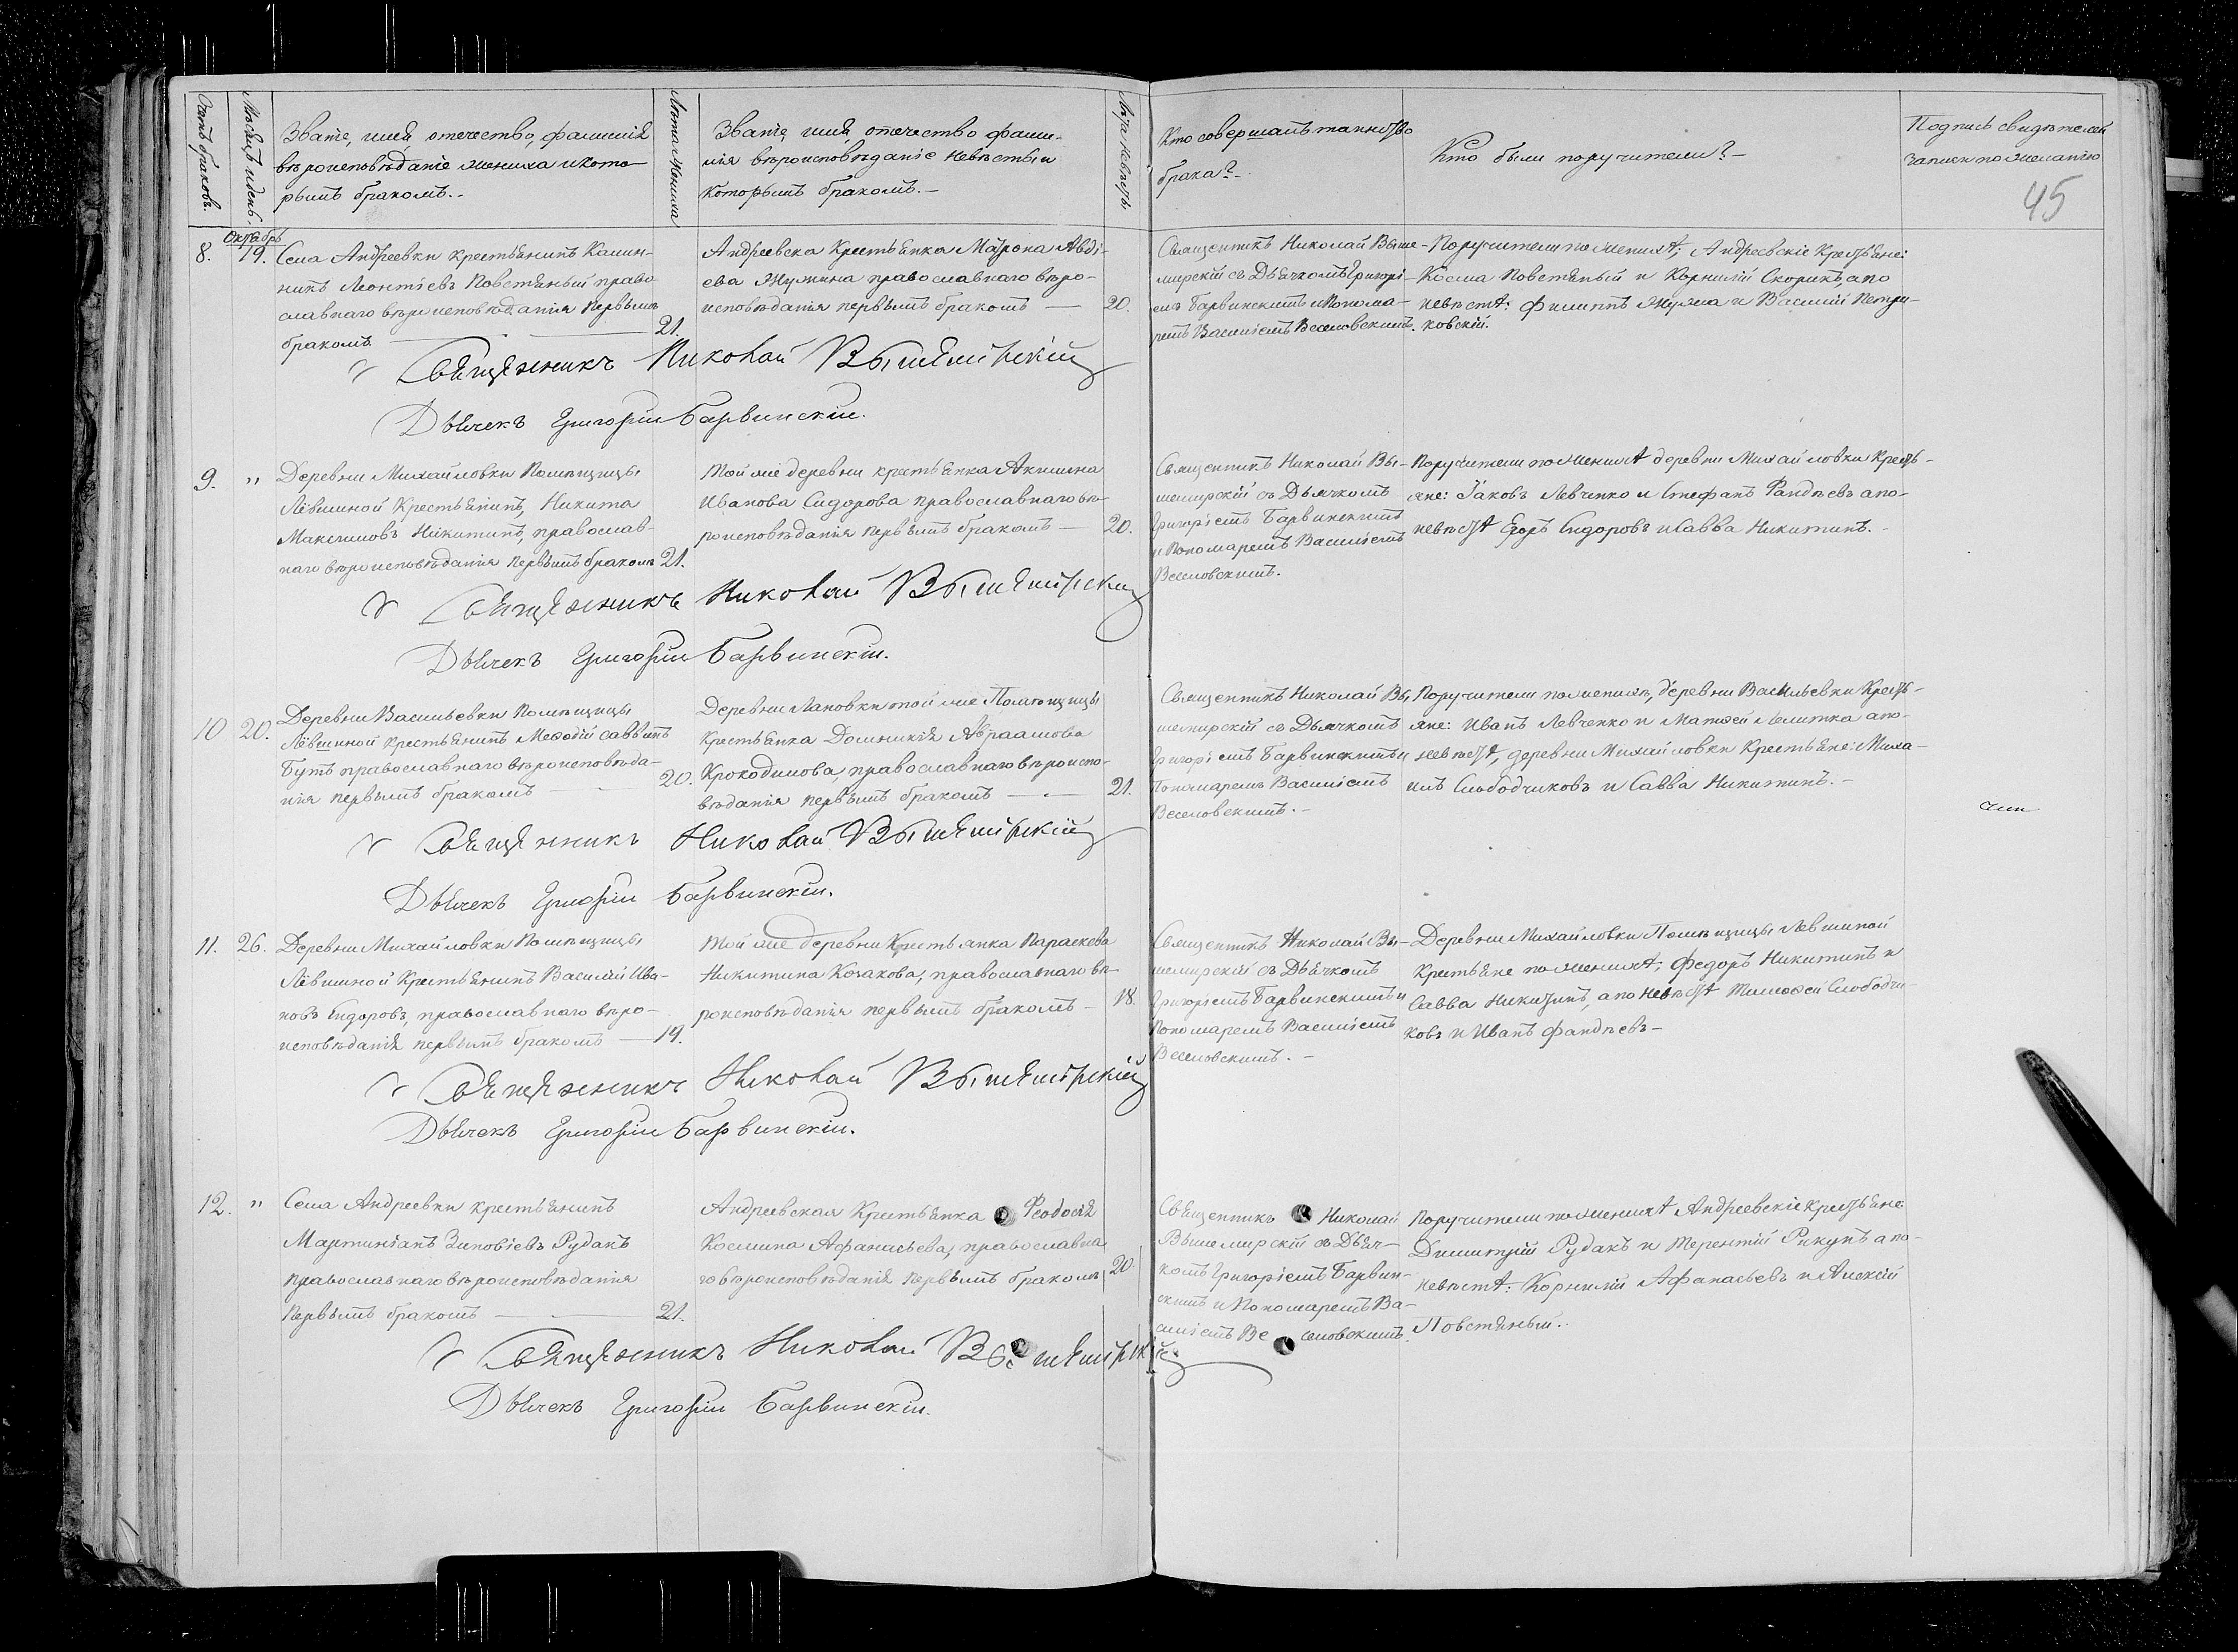 Счетъ браковъ.
Мѣсяцъ и день.
Званіе, имя, отечество, фамилія
вѣроисповѣданіе жениха и кото-
рымъ бракомъ.
Лѣта жениха
Званіе, имя, отечество фами-
лія вѣроисповѣданіе невѣсты и
которымъ бракомъ.
Лѣта невѣсты
Кто совершалъ таинство
брака?
Кто были поручители?
Подпись свидѣтелей
записи по желанію
45
Октябрь
8. 19.
Села Андреевки крестьянинъ Калин-
никъ Леонтіевъ Повстяный право
славнаго вѣроисповѣданія первымъ
бракомъ 21.
Андреевска крестьянка Марона Авді-
ева Жулина православнаго вѣро-
исповѣданія первымъ бракомъ 20.
Священникъ Николай Выше-
мирскій съ Дьячкомъ Григорі-
емъ Барвинскимъ и Понома-
ремъ Василіемъ Веселовскимъ.
Поручители по женихѣ; Андреевскіе крестьяне:
Косма Повстяный и Корнилій Скорикъ, а по
невѣстѣ: Филиппъ Жулла и Василій Петри-
ковскій.
Священникъ Николай Вышемірскій
Дьячекъ Григорій Барвинскій.
9. "
Деревни Михайловки Помѣщицы
Лёвшиной Крестьянинъ, Никита
Максимовъ Никитинъ, православ-
наго вѣроисповѣданія первымъ бракомъ 21.
Той же деревни крестьянка Акилина
Иванова Сидорова православнаго вѣ-
роисповѣданія первымъ бракомъ 20.
Священникъ Николай Вы-
шемирскій съ Дьячкомъ
Григоріемъ Барвинскимъ
и Пономаремъ Василіемъ
Веселовскимъ.
Поручители по женихѣ деревни Михайловки Кресть-
яне: Іаковъ Левченко и Стефанъ Фандѣевъ а по-
невѣстѣ Егоръ Сидоровъ и Савва Никитинъ.
Священникъ Николай Вышемірскій
Дьячекъ Григорій Барвинскій.
10 20.
Деревни Васильевки Помѣщицы
Лёвшиной крестьянинъ Меѳодій Саввинъ
Бутъ православнаго вѣроисповѣда-
нія первымъ бракомъ 20.
Деревни Лановки той же Помѣщицы
крестьянка Домникія Авраамова
Крокодилова, православнаго вѣроиспо-
вѣданія первымъ бракомъ 21.
Священникъ Николай Вы,
шемирскій съ Дьячкомъ
Григоріемъ Барвинскимъ и
Пономаремъ Василіемъ
Веселовскимъ.
Поручители по женихѣ, деревни Васильевки Кресть-
яне: Иванъ Левченко и Матѳей Лелитка а по-
невѣстѣ, деревни Михайловки Крестьяне: Миха-
илъ Слободчиковъ и Савва Никитинъ.
Священникъ Николай Вышемірскій
Дьячекъ Григорій Барвинскій.
11. 26.
Деревни Михайловки Помѣщицы
Лёвшиной Крестьянинъ Василій Ива-
новъ Сидоровъ, православнаго вѣро-
исповѣданія первымъ бракомъ 19.
Той же деревни Крестьянка Параскева
Никитина Козакова, православнаго вѣ-
роисповѣданія первымъ бракомъ 18.
Священникъ Николай Вы-
шемирскій съ Дьячкомъ
Григоріемъ Барвинскимъ и
Пономаремъ Василіемъ
Веселовскимъ.
Деревни Михайловки Помѣщицы Левшиной
Крестьяне по женихѣ; Федоръ Никитинъ и
Савва Никитинъ, а по невѣстѣ Тимоѳей Слободчи
ковъ и Иванъ Фандѣевъ
Священникъ Николай Вышемірскій
Дьячекъ Григорій Барвинскій.
12. "
Села Андреевки крестьянинъ
Мартиніанъ Зиновіевъ Рудакъ
православнаго вѣроисповѣданія
первымъ бракомъ 21.
Андреевская Крестьянка Ѳеодосія
Космина Афанасьева, православна
го вѣроисповѣданія первымъ бракомъ 20
Священникъ Николай
Вышемирскій съ Дьяч-
комъ Григоріемъ Барвин-
скимъ и Пономаремъ Ва-
силіемъ Веселовскимъ.
Поручители по женихѣ Андреевскіе крестьяне
Димитрій Рудакъ и Терентій Рикунъ а по-
невѣстѣ: Корнилій Афанасьевъ и Алексій
Повстяный.
Священникъ Николай Вышемірскій
Дьячекъ Григорій Барвинскій.